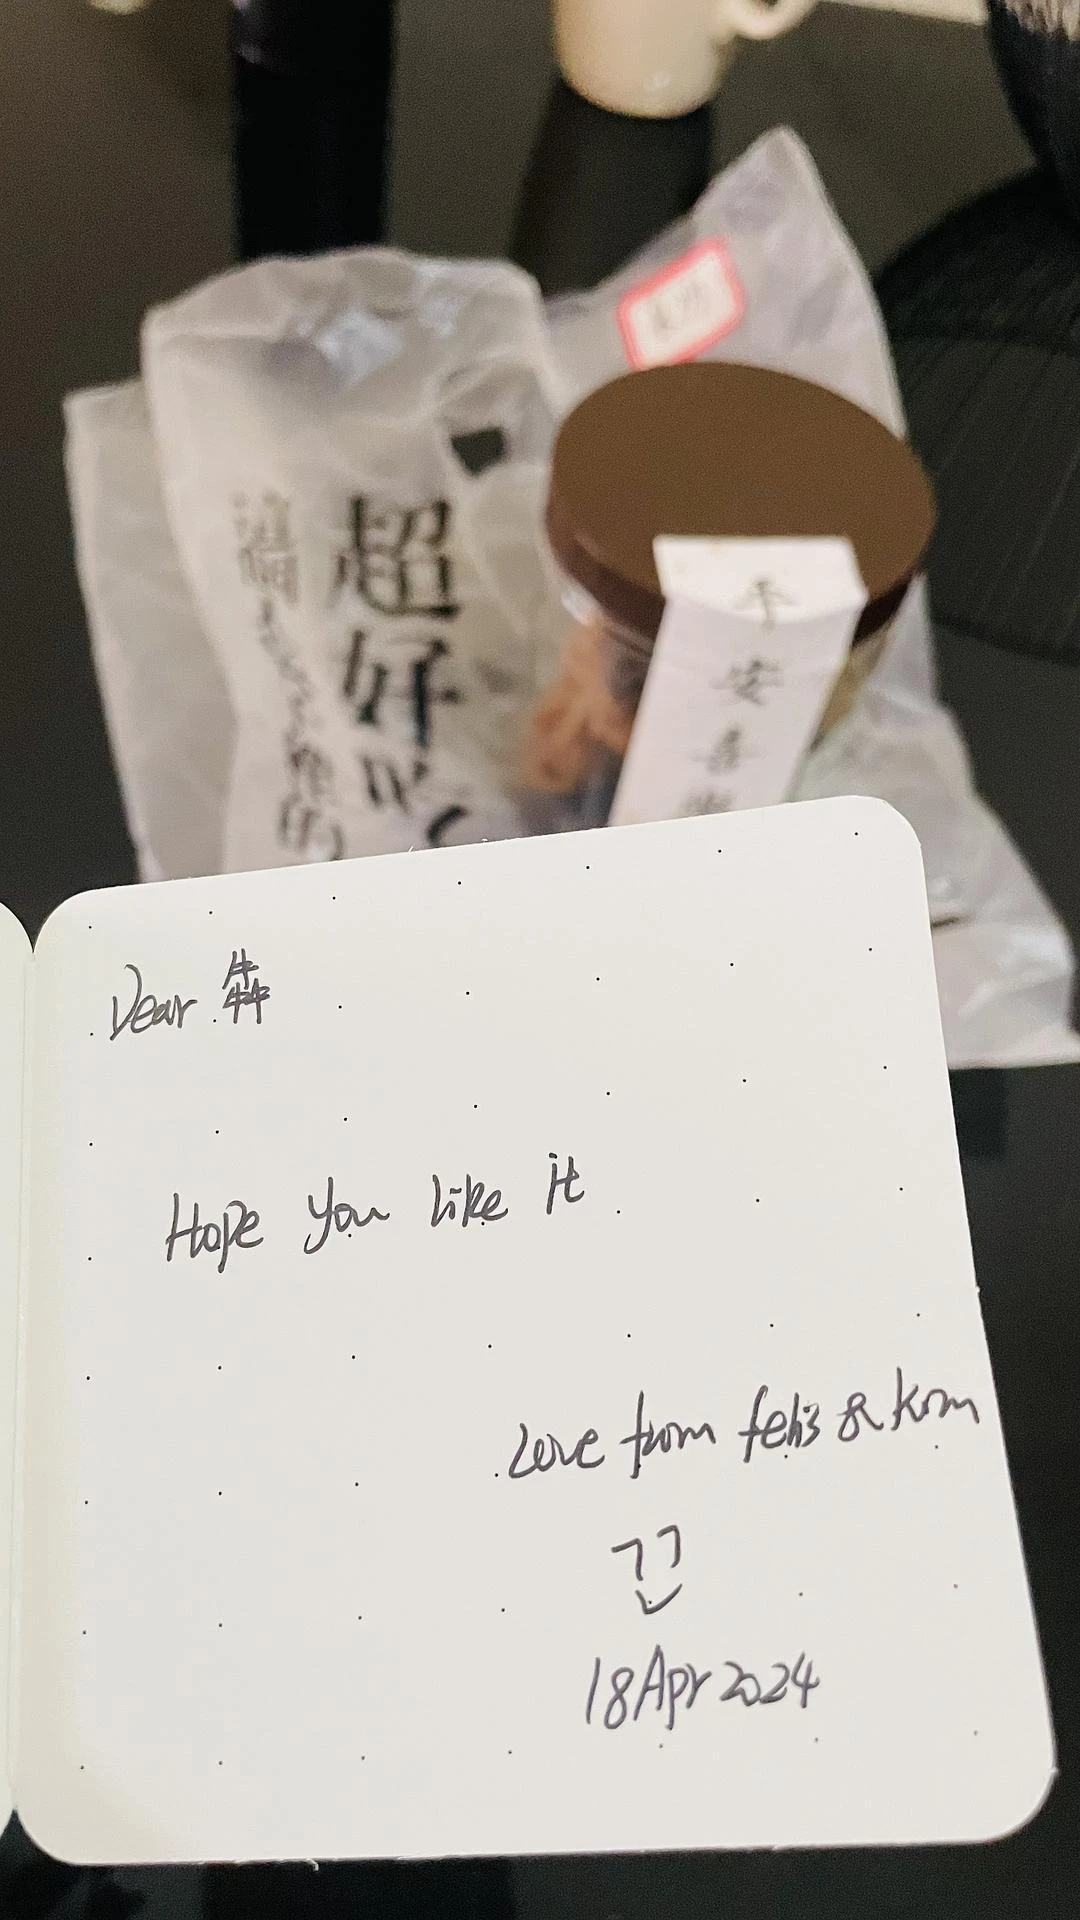 這個
超好吃
的
平安喜樂
Dear 犇
Hope you like it
Love from felis & kom
18 Apr 2024